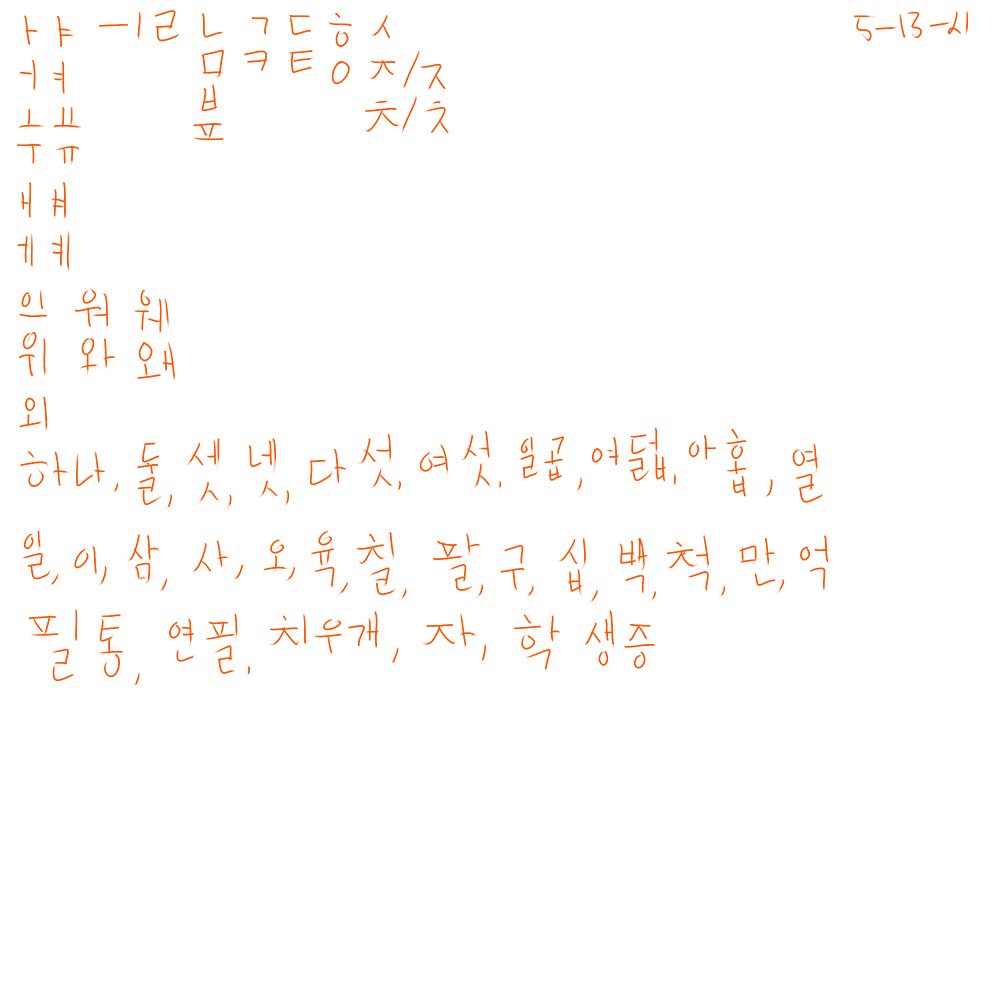 ㅏ ㅑ ㅡ ㅣ ㄹ ㄴ ㄱ ㄷ ㅎ ㅅ 5-13-21
ㅓ ㅕ ㅁ ㅋ ㅌ ㅇ ㅈ/ㅈ
ㅗ ㅛ ㅂ ㅊ/ㅊ
ㅜ ㅠ ㅍ
ㅐ ㅒ
ㅔ ㅖ
의 워 웨
위 와 왜
외
하나, 둘, 셋, 넷, 다섯, 여섯, 일곱, 여덟, 아홉, 열
일, 이, 삼, 사, 오, 육, 칠, 팔, 구, 십, 백, 척, 만, 억
필통, 연필, 치우개, 자, 학생증